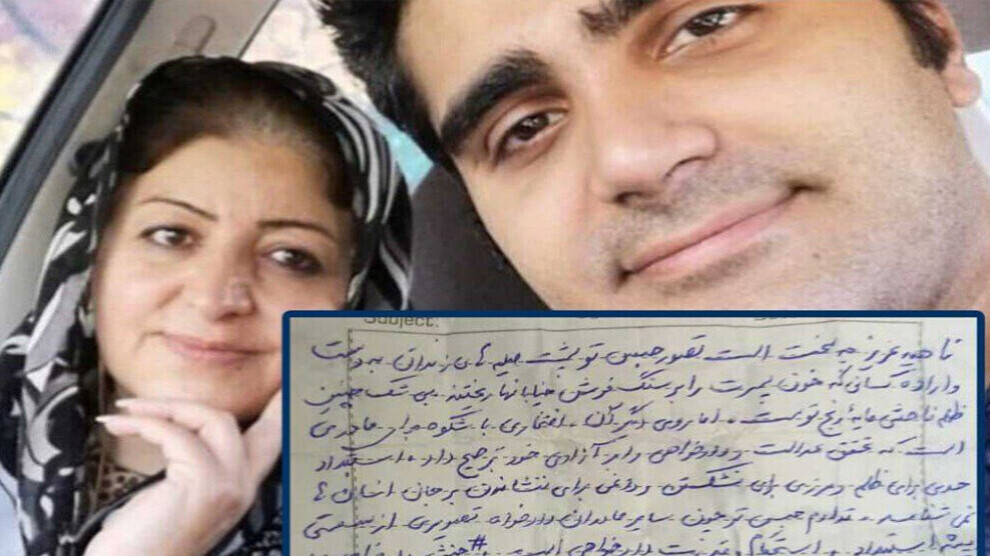 Subject:
ناهید عزیز چه سخت است تصور حبس تو پشت میله های زندان به دست
و اراده کسانی که خون پسرت را بر سنگ فرش خیابانها ریختند. بی شک چنین
ظلم ناحقی مایهٔ رنج توست. اما روی دیگر آن، افتخاری با شکوه برای مادری
است که تحقق عدالت و دادخواهی را بر آزادی خود ترجیح داد. استبداد
حدی برای ظلم و مرزی برای شکستن و داغی برای نشاندن بر جان انسان ها
نمی شناسد. تداوم حبس تو چون سایر مادران دادخواه تصویری از
استبداد و استحکام دادخواهی است. #